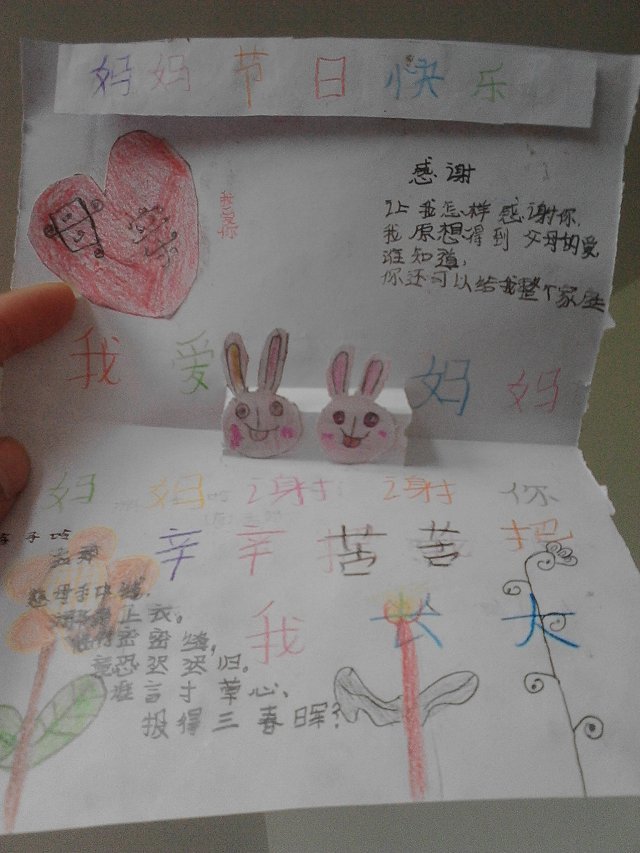 妈妈节日快乐
感谢
我爱你
让我怎样感谢你,
我原想得到父母的爱
谁知道,
你还可以给我整个家庭
我爱妈妈
妈妈谢谢你
辛辛苦苦把
我长大
孟郊
慈母手中
上衣。
临行密密缝,
意恐迟迟归。
谁言寸草心、
报得三春晖?